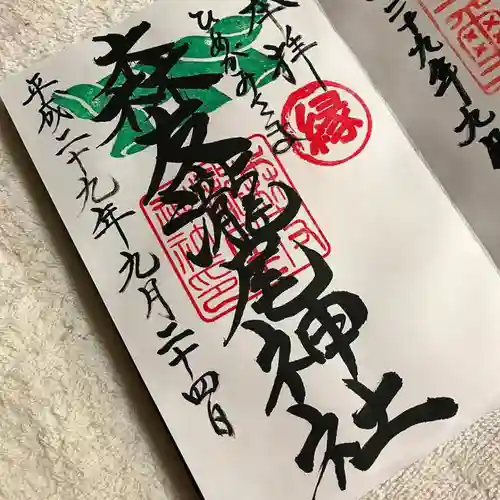 二十九年九月
奉拝
縁
ひめかみさま
森友瀧尾神社
平成二十九年九月二十四日